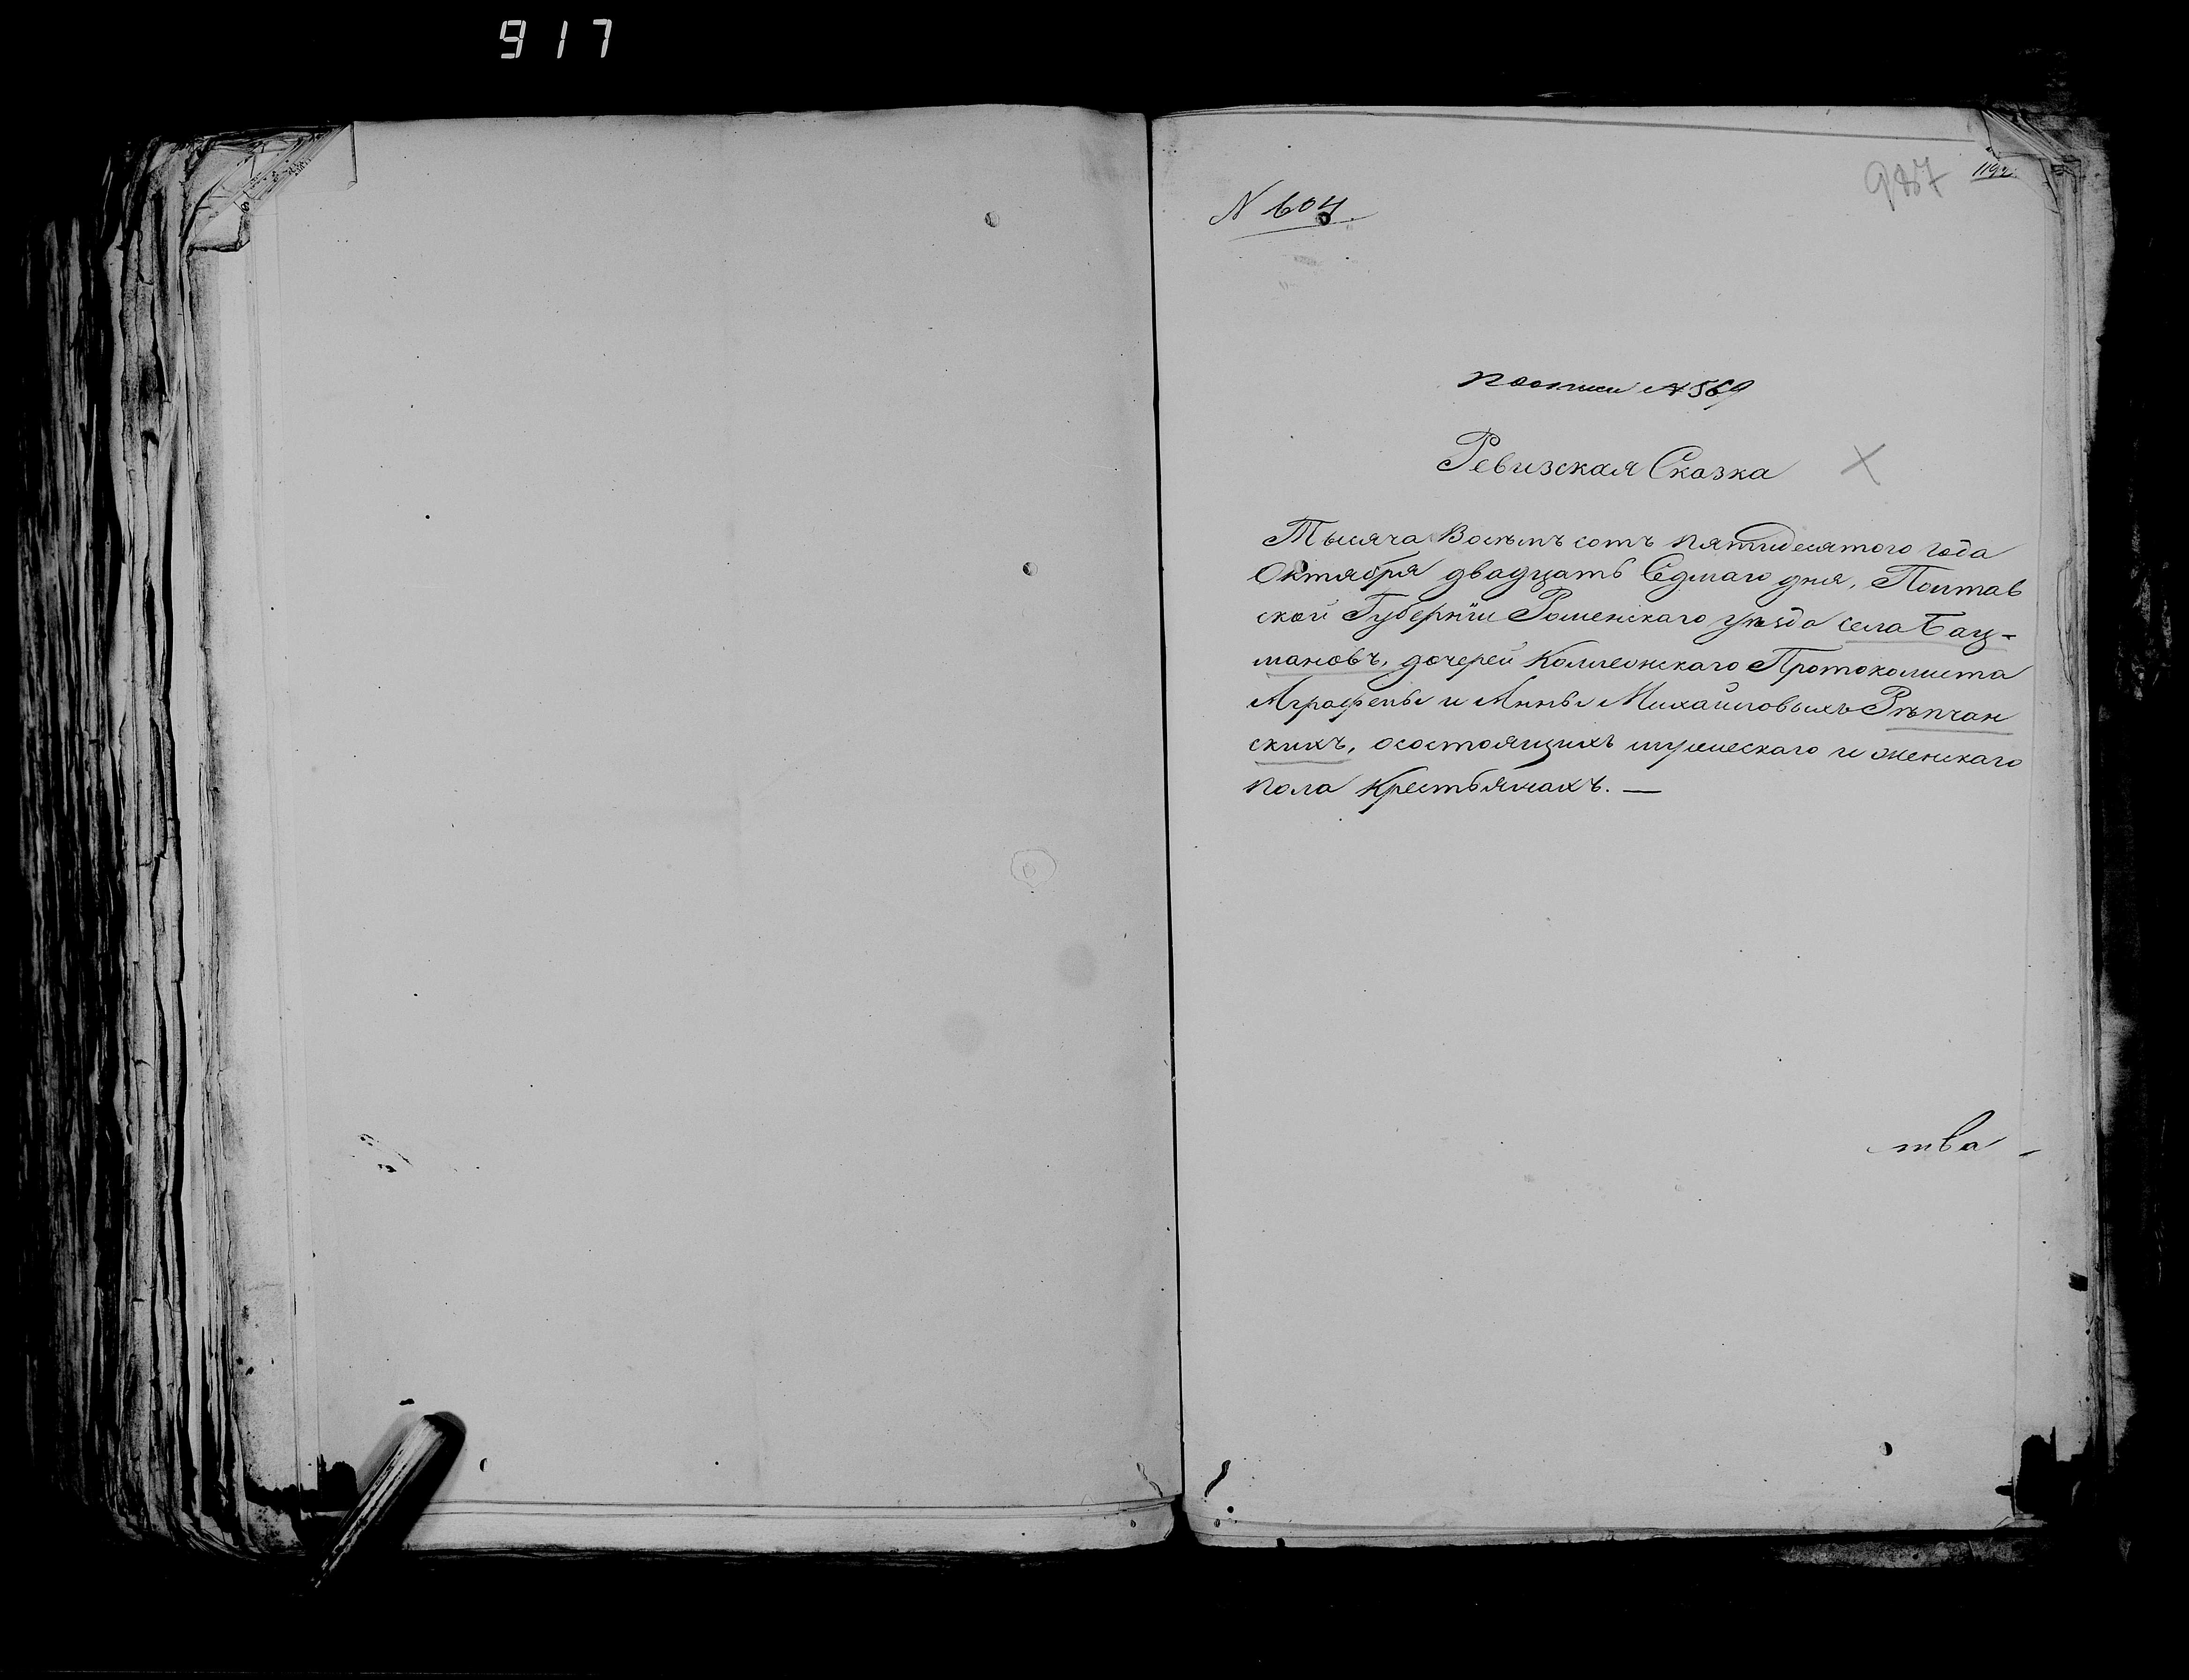 917
987
1192
N 604.
по описи N 569
Ревизская Сказка
Тысяча Восемъ сотъ пятидесятого года
Октября двадцать Седмаго дня, Полтав
ской Губерніи Роменскаго уѣзда села Бац-
мановъ, дочерей Коллежскаго Протоколиста
Аграфены и Анны Михайловыхъ Рѣпчан
скихъ, осостоящихъ мужескаго и женскаго
пола Крестьянахъ. —
тва -